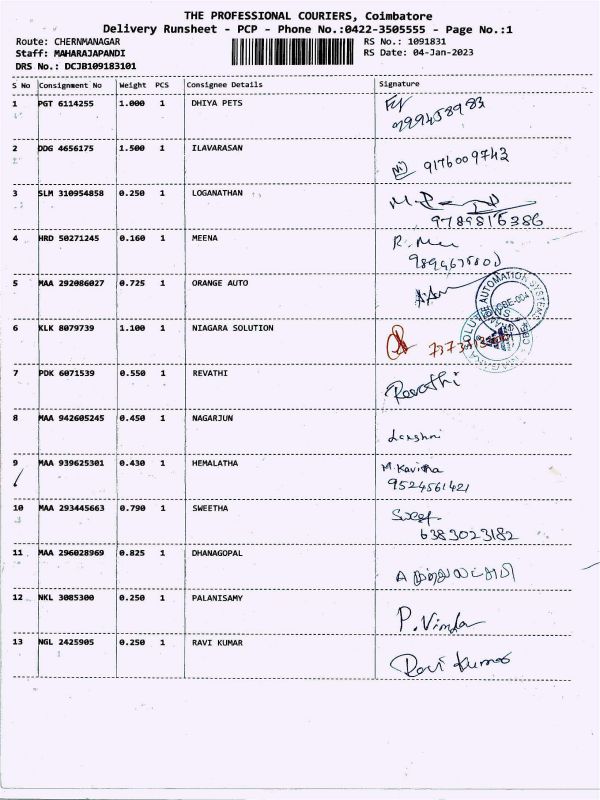 THE PROFESSIONAL COURIERS, Coimbatore
Delivery Runsheet - PCP - Phone No.:0422-3505555 - Page No.:1
Route: CHERNMANAGAR
RS No.: 1091831
Staff: MAHARAJAPANDI
RS Date: 04-Jan-2023
DRS No.: DCJB109183101
S No Consignment No Weight PCS Consignee Details Signature
1 PGT 6114255 1.000 1 DHIYA PETS
2 DDG 4656175 1.500 1 ILAVARASAN
9176009743
3 SLM 310954858 0.250 1 LOGANATHAN
9789816386
4 HRD 50271245 0.160 1 MEENA
5 MAA 292086027 0.725 1 ORANGE AUTO
AUTOMATION SYSTEMS
CBE-004
6 KLK 8079739 1.100 1 NIAGARA SOLUTION
7 PDK 6071539 0.550 1 REVATHI
Revathi
8 MAA 942605245 0.450 1 NAGARJUN
9 MAA 939625301 0.430 1 HEMALATHA
M. Kavitha
9524561421
10 MAA 293445663 0.790 1 SWEETHA
6383023182
11 MAA 296028969 0.825 1 DHANAGOPAL
12 NKL 3085300 0.250 1 PALANISAMY
P. Vimla
13 NGL 2425905 0.250 1 RAVI KUMAR
Ravi Kumar